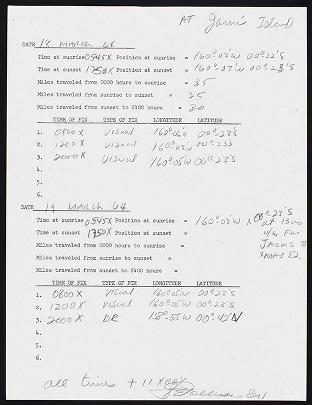 AT Jarvis Island
DATE 18 MARCH 64
Time at sunrise 0545X Position at sunrise = 160°02'W 00°22'S
Time at sunset 1750X Position at sunset = 160°07'W 00°23'S
Miles traveled from 0000 hours to sunrise = 35
Miles traveled from sunrise to sunset = 35
Miles traveled from sunset to 2400 hours = 30
TIME OF FIX TYPE OF FIX LONGITUDE LATITUDE
1. 0800X Visual 160°02'W 00°22'S
2. 1200X Visual 160°03'W 00°23'S
3. 2000X Visual 160°05'W 00°23'S
4.
5.
6.
DATE 19 MARCH 64
Time at sunrise 0545X Position at sunrise = 160°03'W 00°23'S
Time at sunset 1750X Position at sunset =
at 1300
Miles traveled from 0000 hours to sunrise =
JARVIS TO
Miles traveled from sunrise to sunset =
XMAS IS.
Miles traveled from sunset to 2400 hours =
TIME OF FIX TYPE OF FIX LONGITUDE LATITUDE
1. 0800X Visual 160°05'W 00°23'S
2. 1200X Visual 160°05'W 00°23'S
3. 2000X DR 158°55'W 00°42'N
4.
5.
6.
all times + 11X